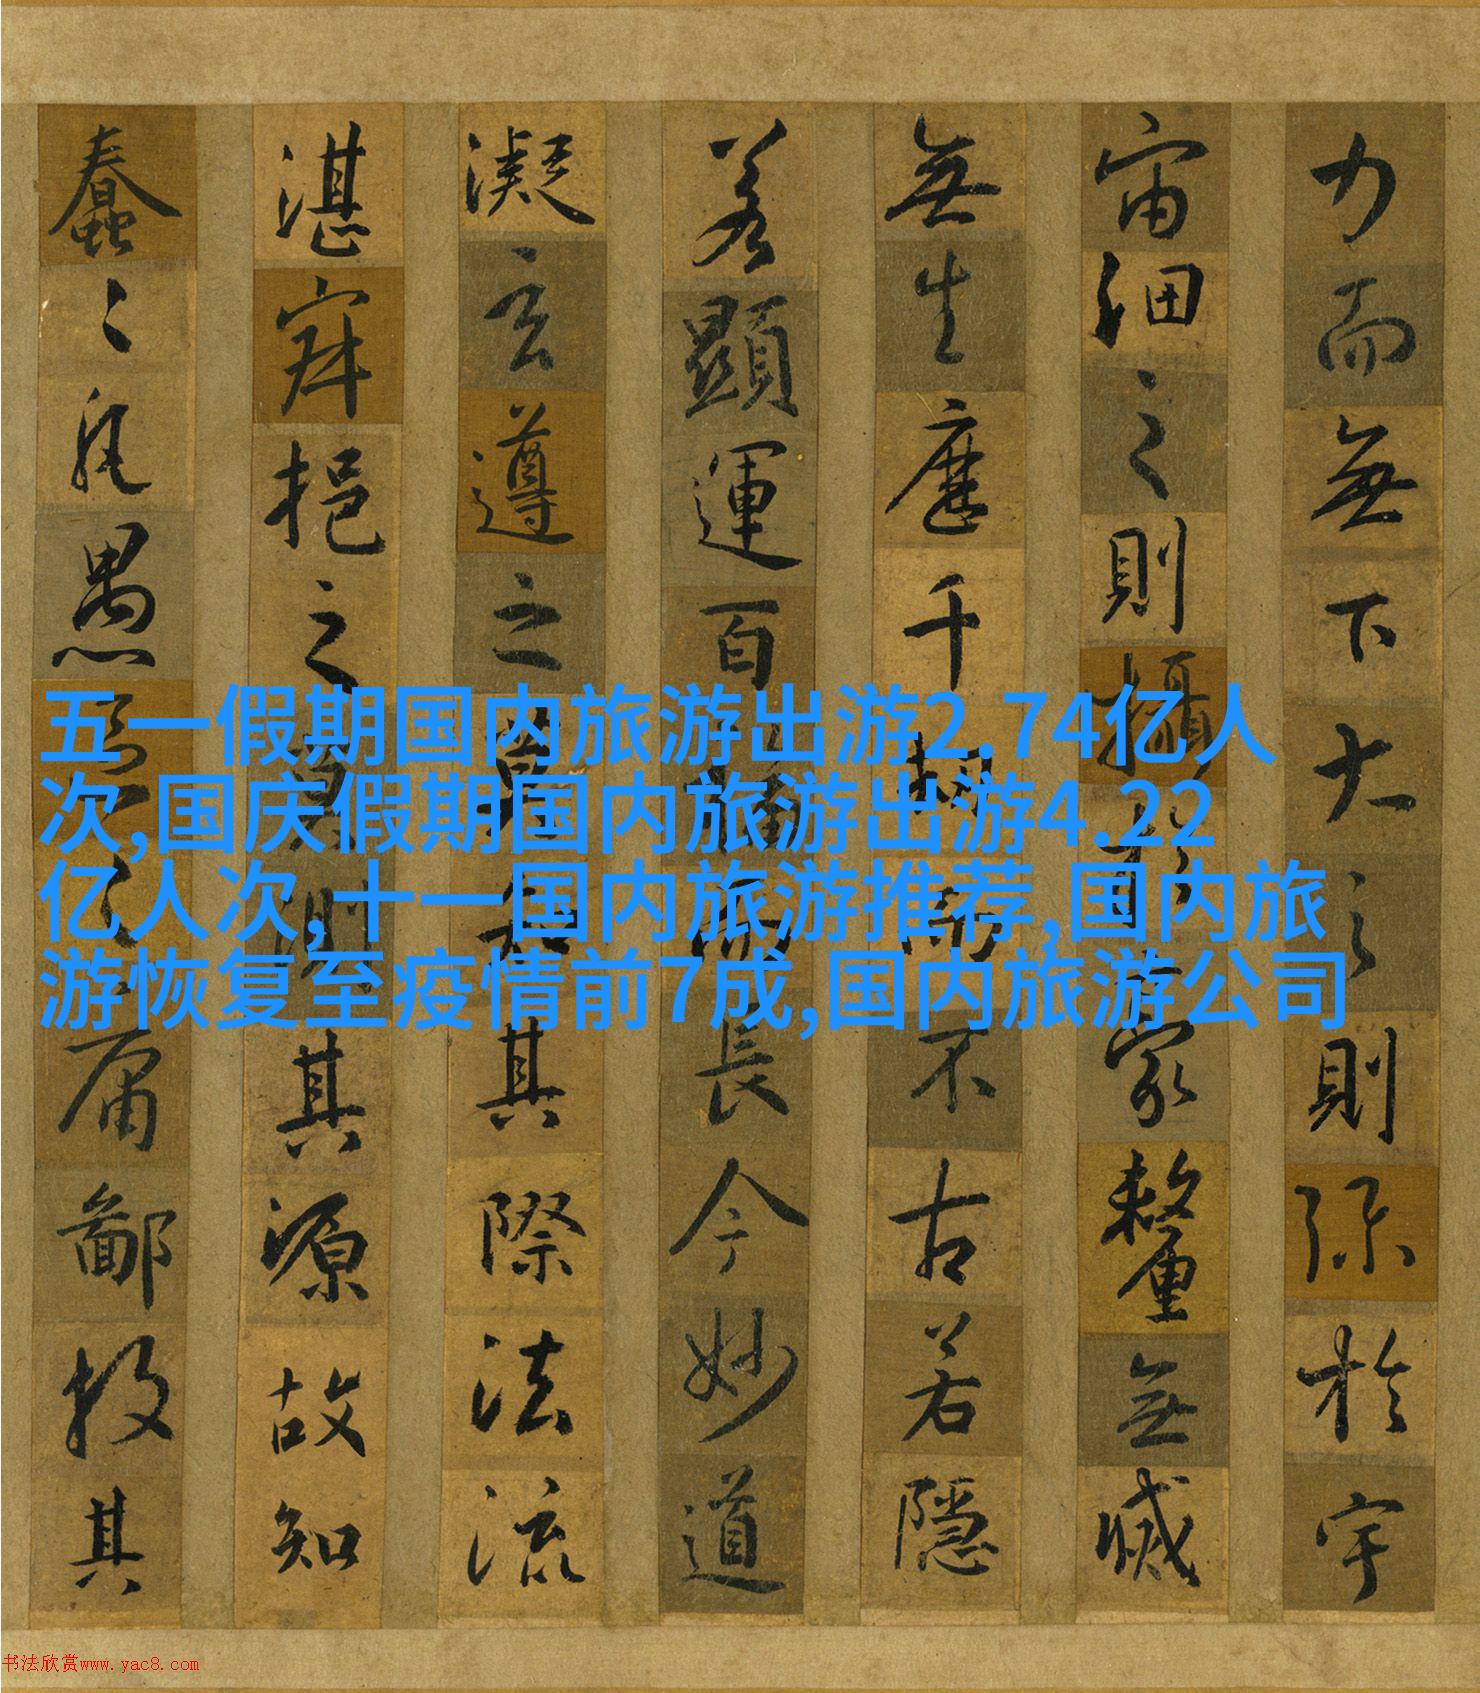 力而無下大之則弥於宇
宙細之則攝於豪釐無滅
無生歷千劫而不古若隱
若顯運百福而長今妙道
凝玄遵之莫知其際法流
湛寂挹之莫測其源故知
蠢々凡愚區々庸鄙投其
五一假期国内旅游出游2.74亿人
次,国庆假期国内旅游出游4.22
亿人次,十一国内旅游推荐,国内旅
游恢复至疫情前7成,国内旅游公司
书法欣赏www.yac8.com